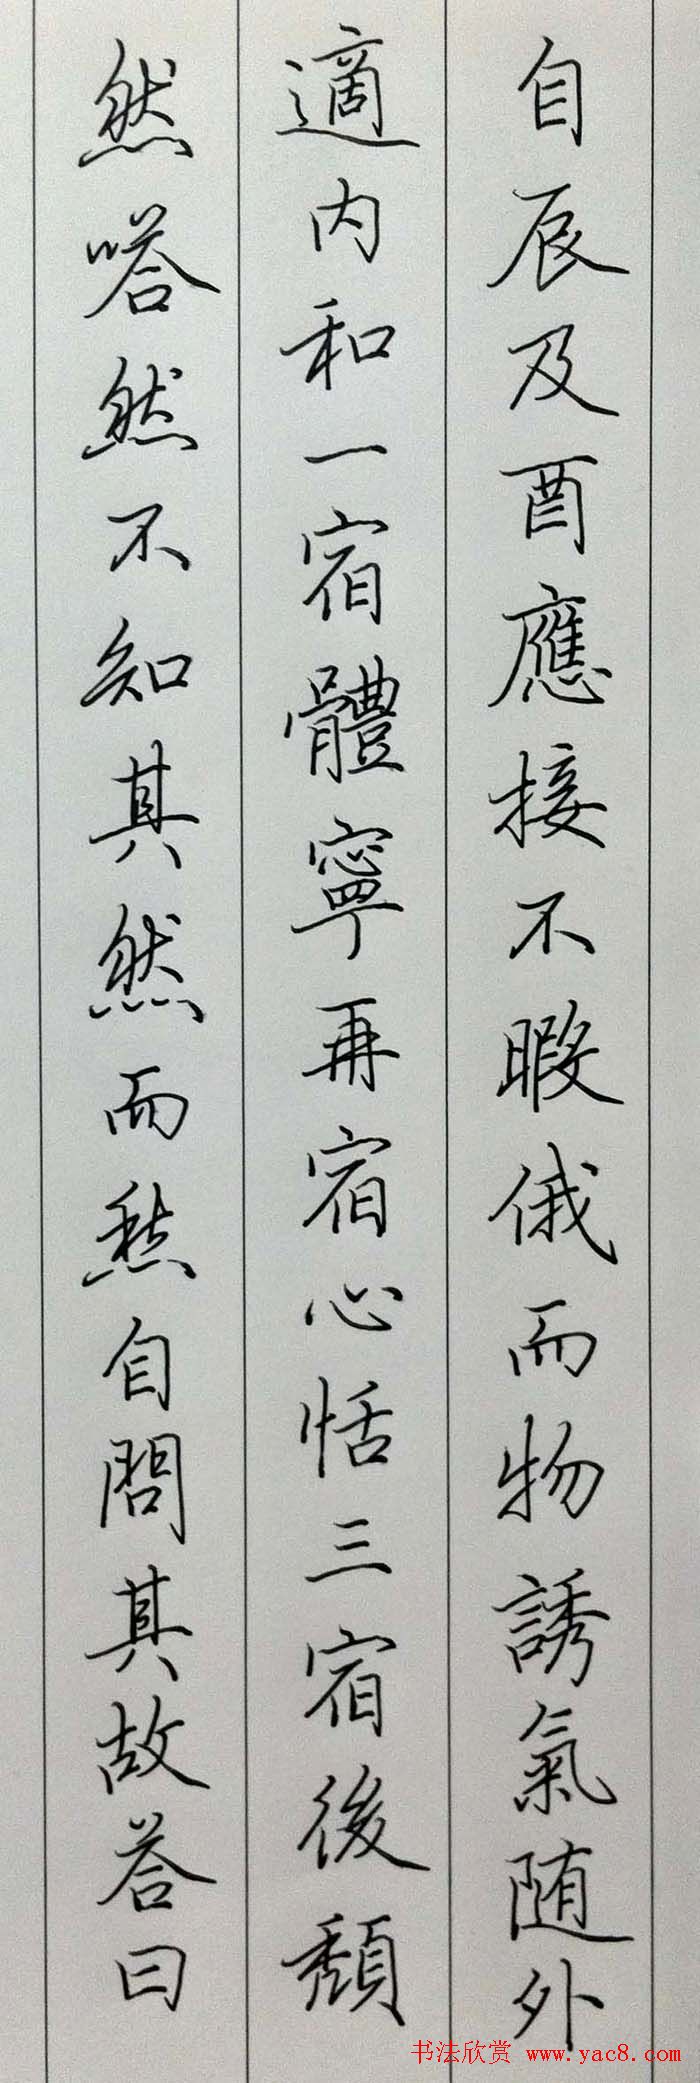 自辰及酉應接不暇俄而物誘氣随外
適内和一宿體寧再宿心恬三宿後頹
然嗒然不知其然而然自問其故荅曰
书法欣赏 www.yac8.com